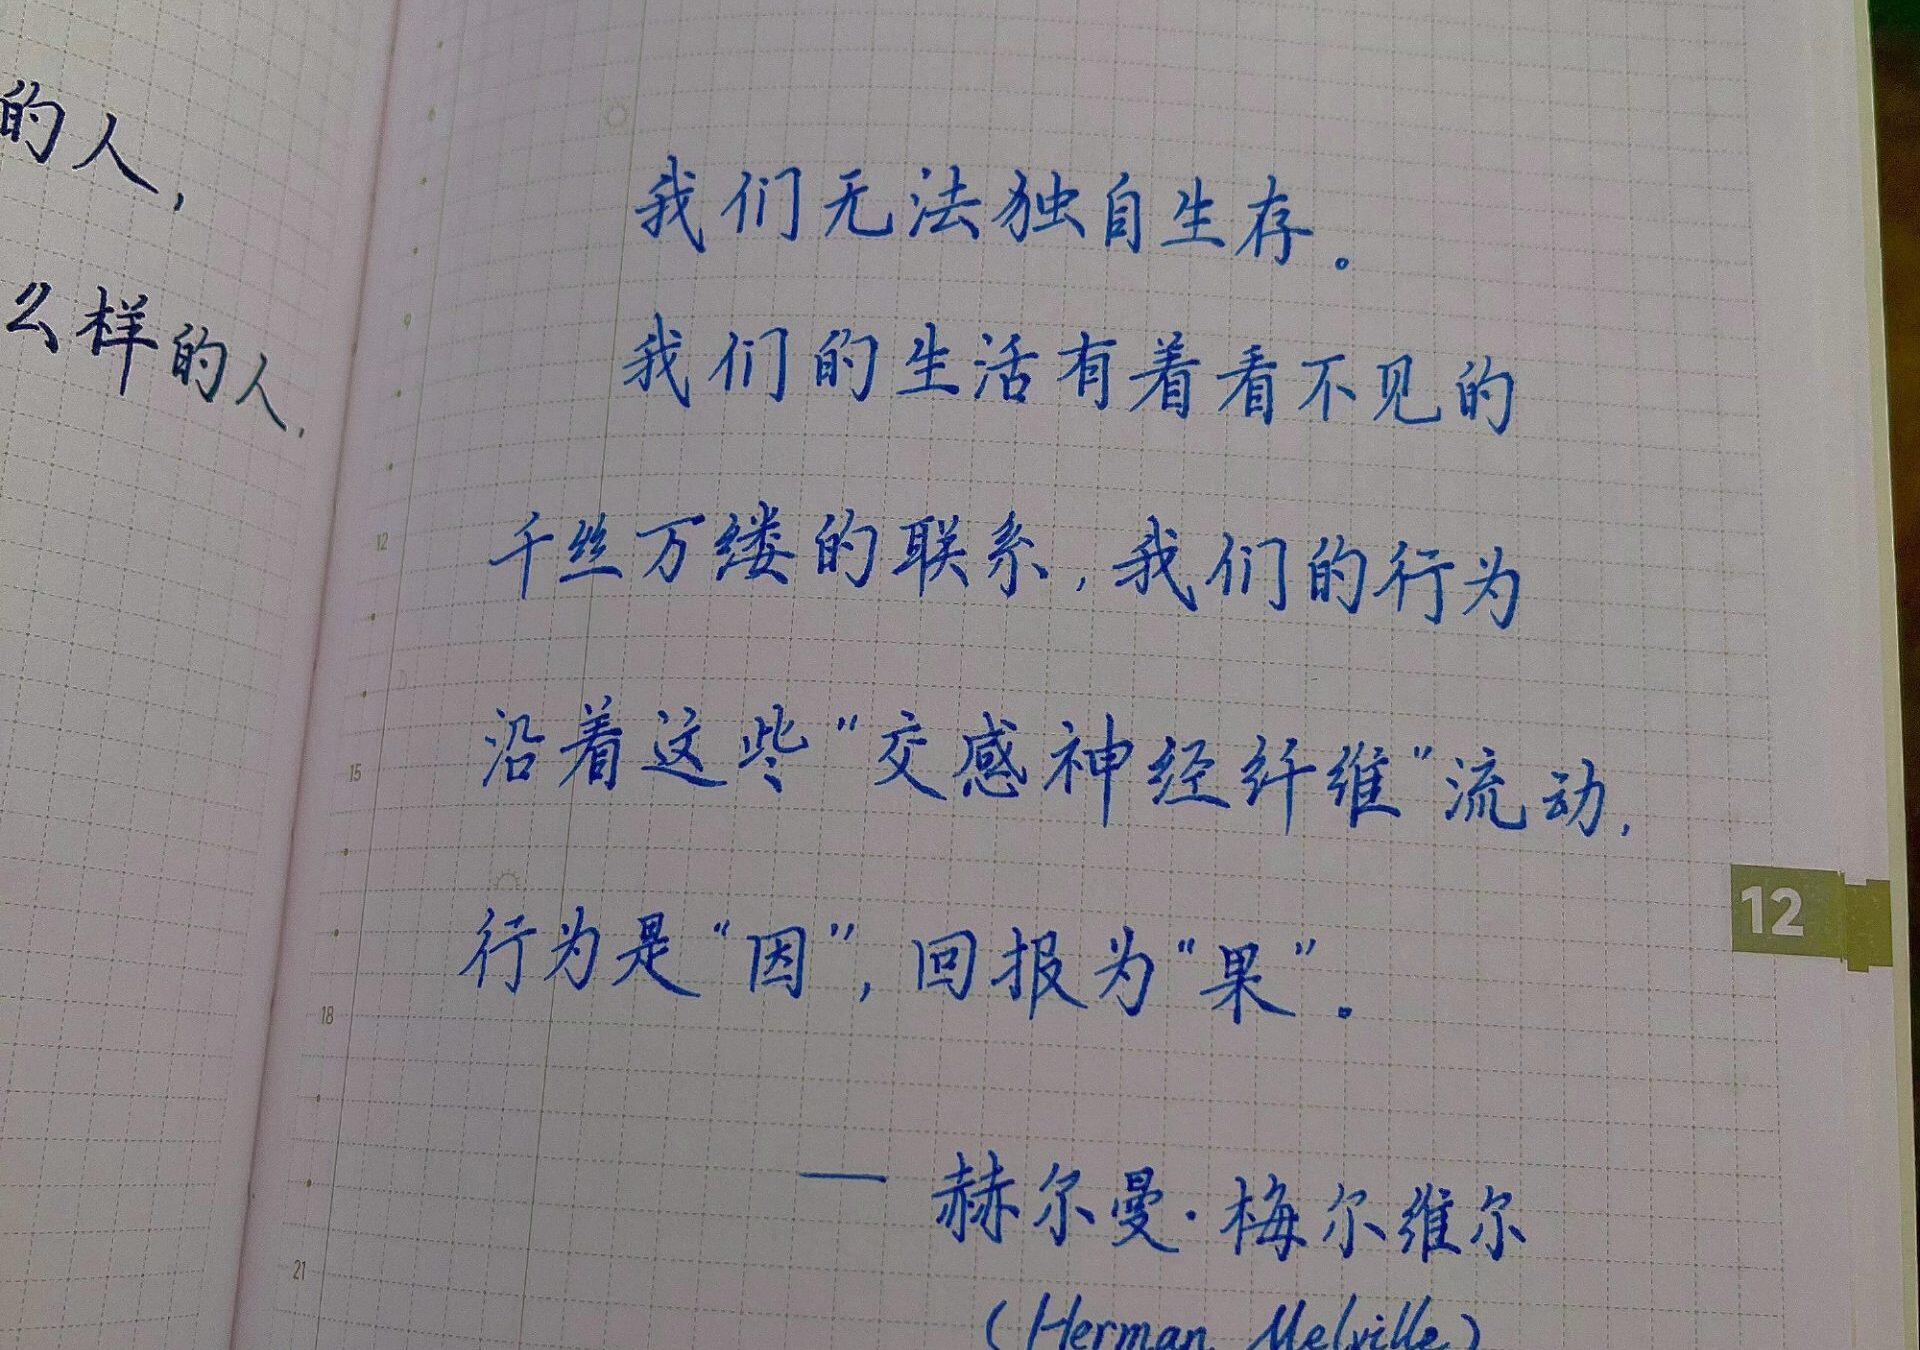 的人,
么样的人.
我们无法独自生存。
我们的生活有着看不见的
千丝万缕的联系,我们的行为
沿着这些"交感神经纤维"流动,
行为是"因",回报为"果"。
— 赫尔曼·梅尔维尔
(Herman Melville)
9
12
15
18
21
12